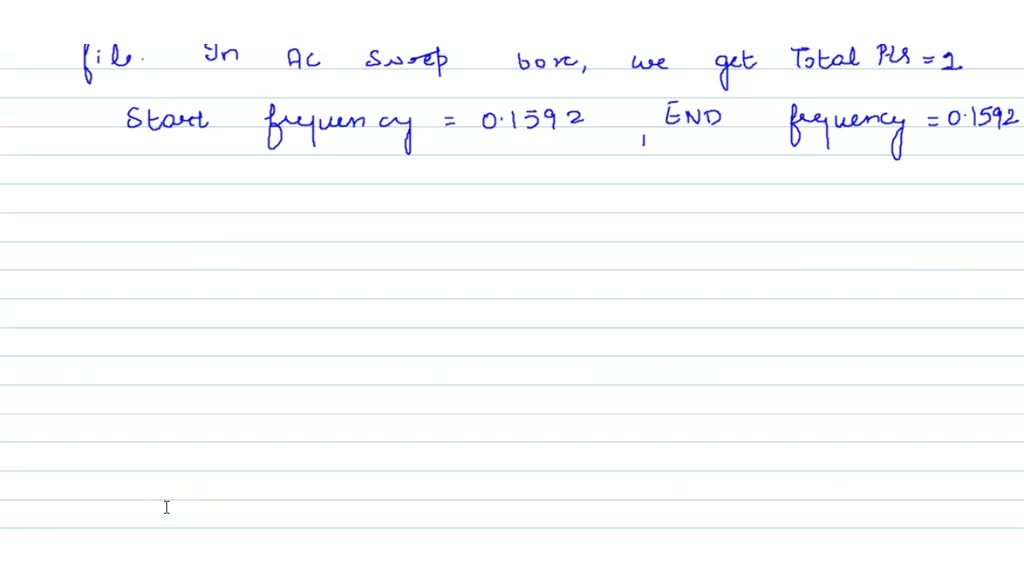 file. In AC Sweep box, we get Total Pts = 1
Start frequency = 0.1592, END frequency = 0.1592